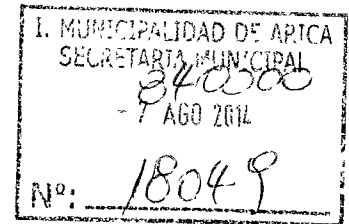 I. MUNICIPALIDAD DE ARICA
SECRETARIA MUNICIPAL
840000
- 7 AGO 2014
Nº: 18049